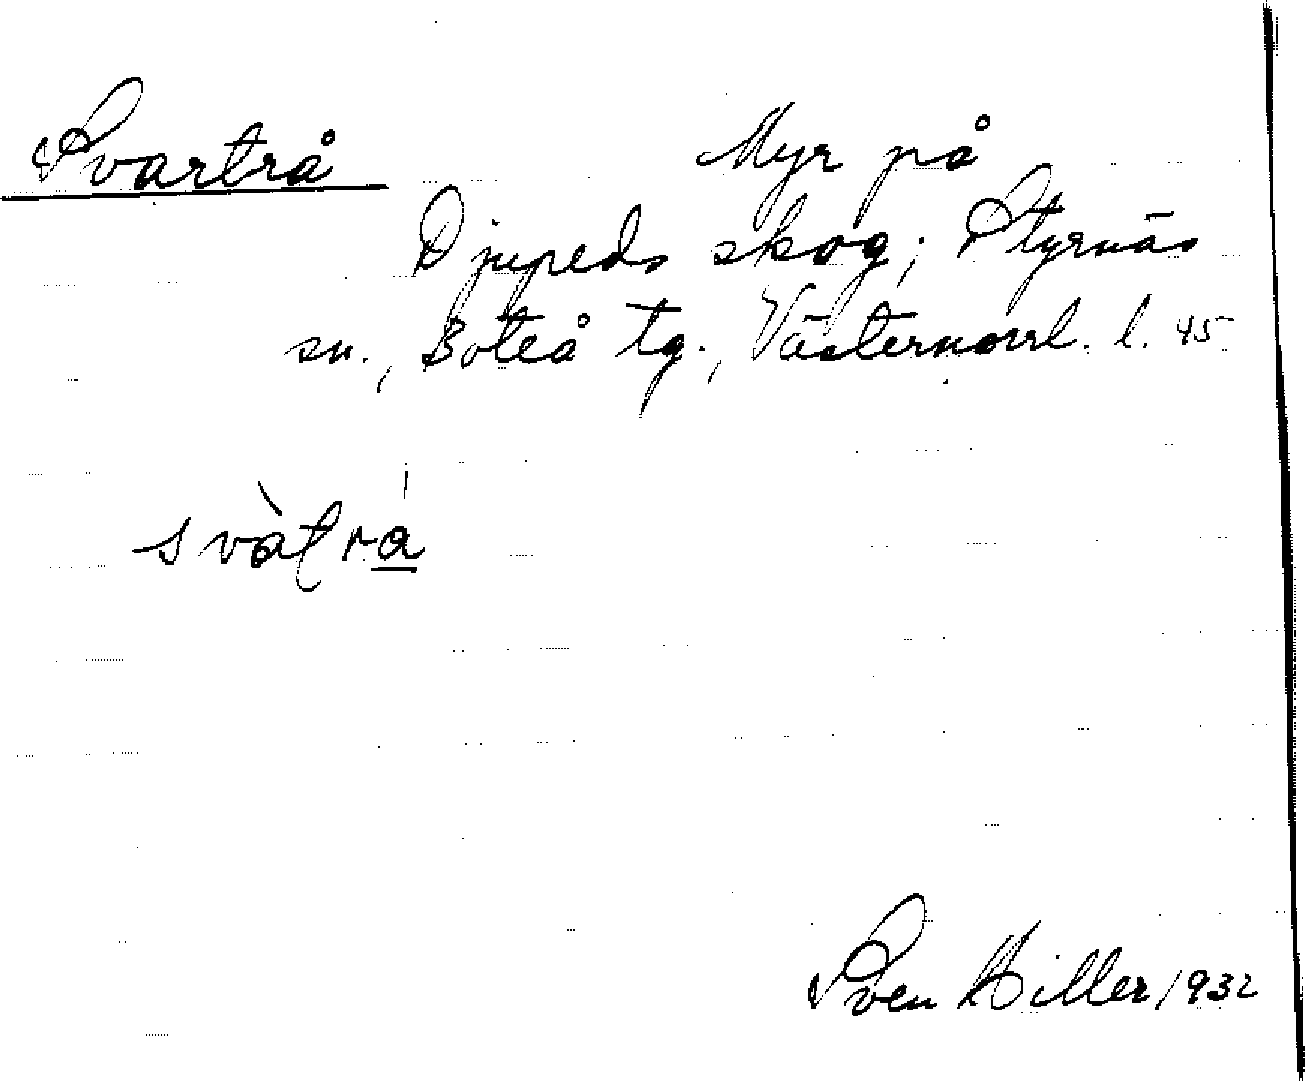 Svartrå
Myr på
Djupeds skog; Styrnäs
sn., Boteå tg., Västernorrl. l. 45
svàtrá
Sven Hiller 1932